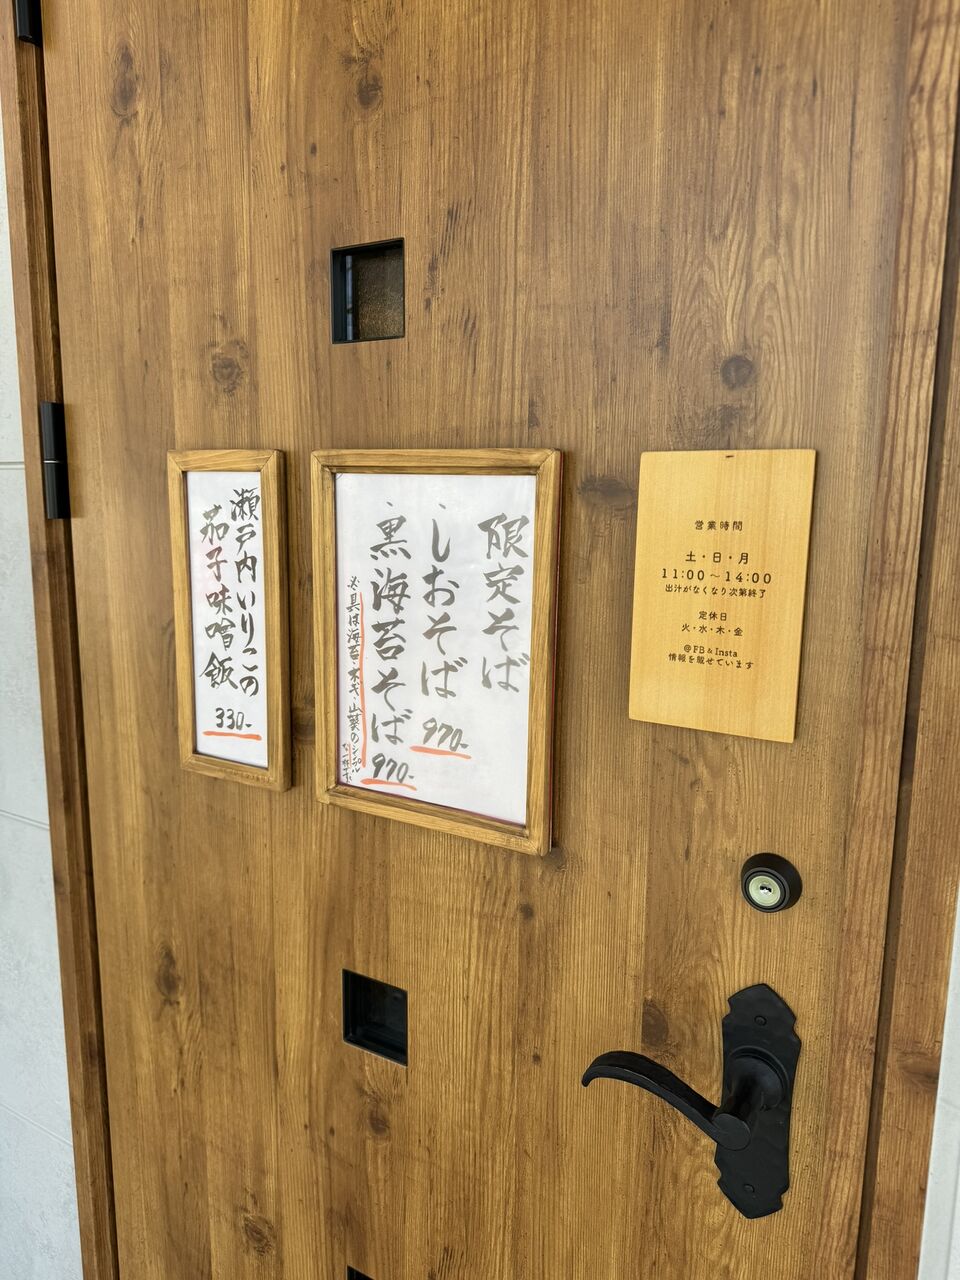 限定そば
・しおそば 970-
・黒海苔そば 970-
※具は海苔・木ギ・山葵のシンプル
な一杯です
瀬戸内いりこの
茄子味噌飯
330-
営業時間
土・日・月
11:00～14:00
出汁がなくなり次第終了
定休日
火・水・木・金
@FB & Insta
情報を載せています